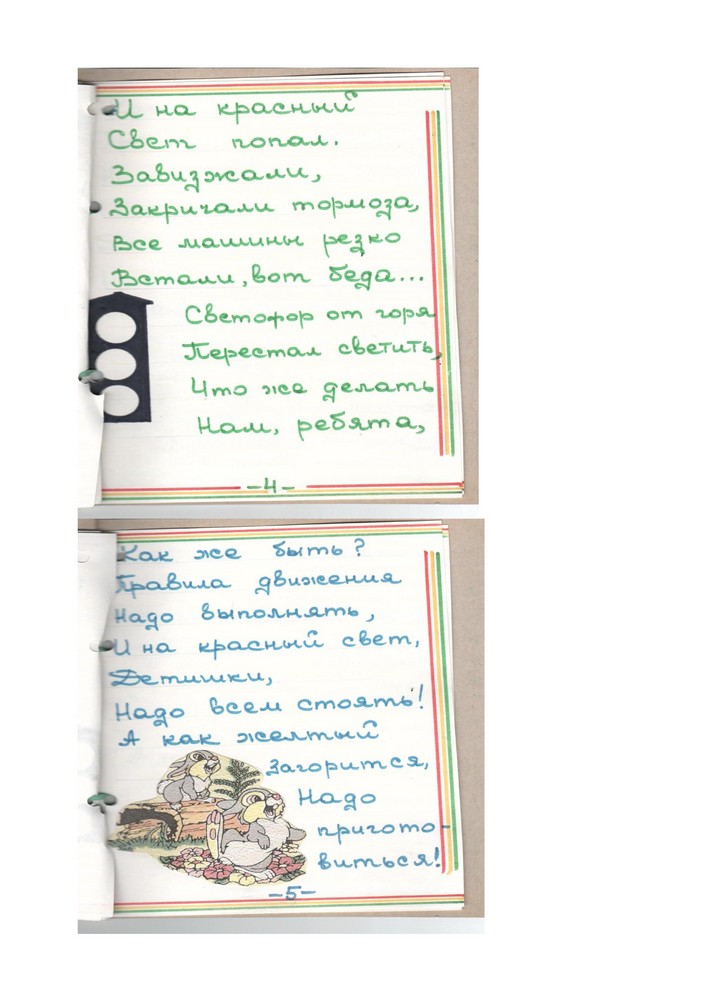 И на красный
Свет попал.
Завизжали,
Закричали тормоза,
Все машины резко
Встали, вот беда...
Светофор от горя
Перестал светить,
Что же делать
Нам, ребята,
-4-
Как же быть?
Правила движения
Надо выполнять,
И на красный свет,
Детишки,
Надо всем стоять!
А как желтый
Загорится,
Надо
пригото-
виться!
-5-